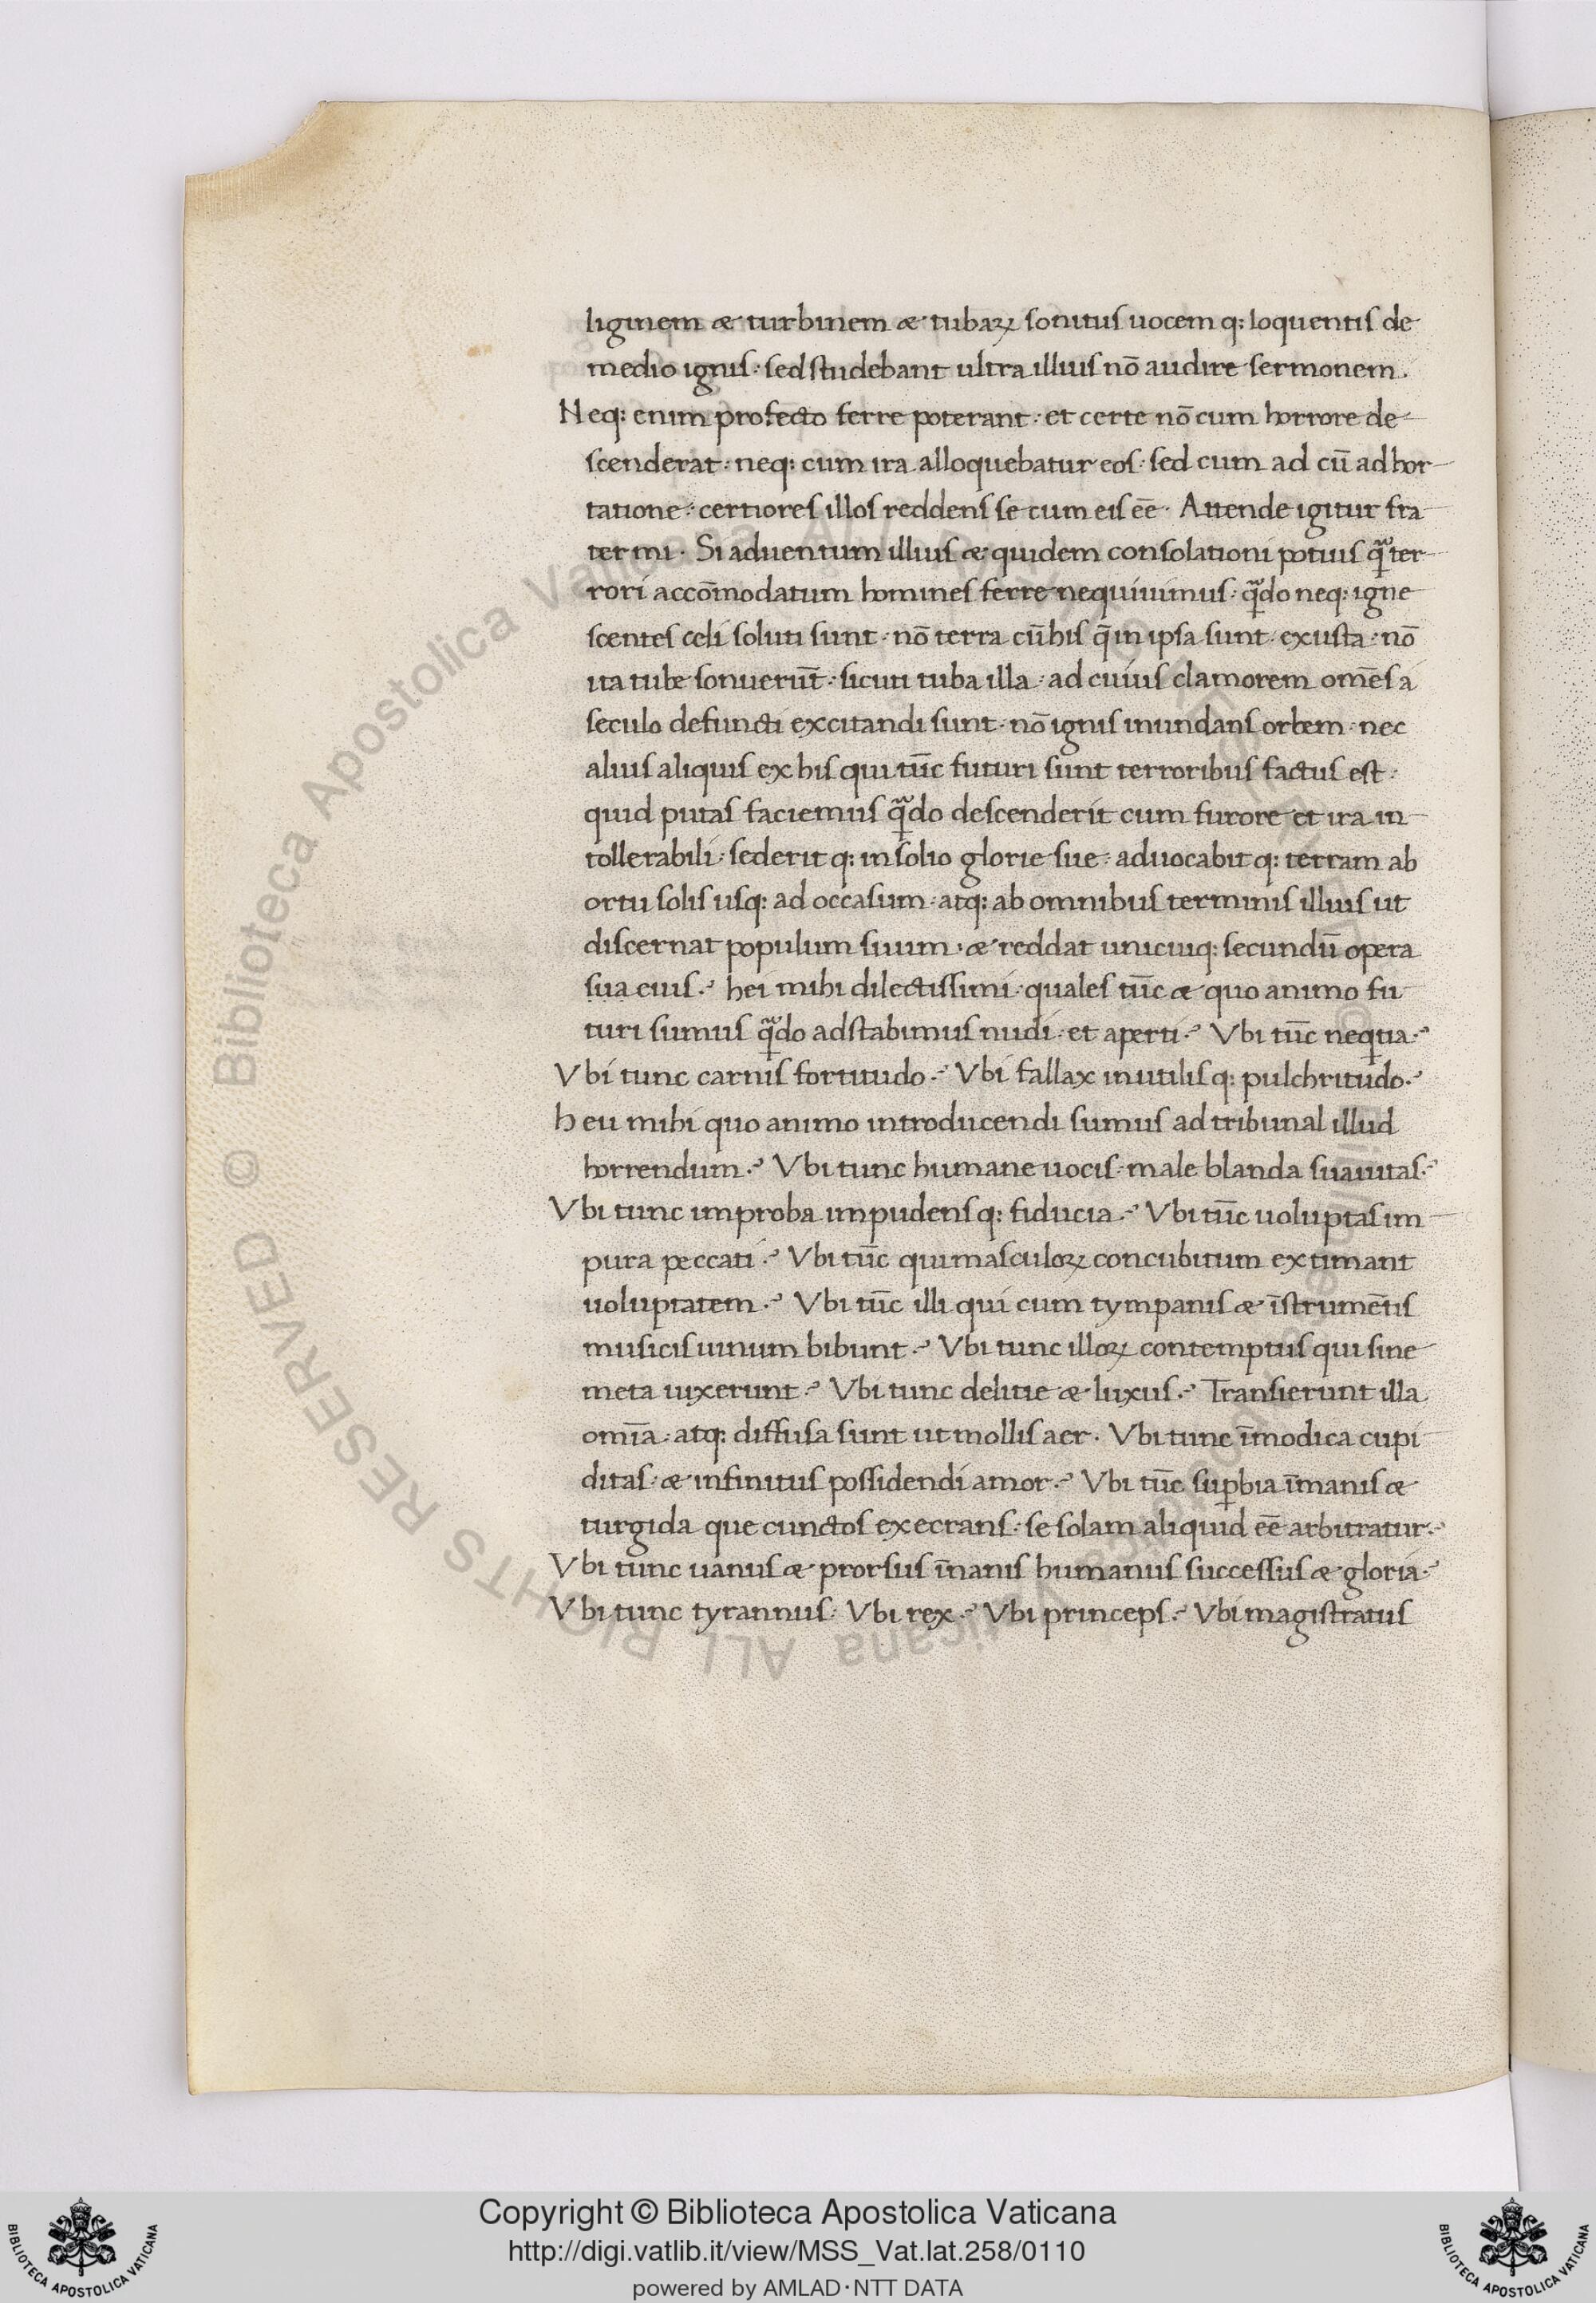 liginem & turbinem & tubaꝝ sonitus uocem q: loquentis de
medio ignis: sed studebant ultra illius nō audire sermonem.
Neq: enim profecto ferre poterant: et certe nō cum horrore de
scenderat: neq: cum ira alloquebatur eos: sed cum ad cū adhor
tatione: certiores illos reddens se cum eis eē. Attende igitur fra
ter mi. Si aduentum illius & quidem consolationi potius qᷓ ter
rori accōmodatum homines ferre nequiuimus: qᷓdo neq: igne
scentes celi soluti sunt: nō terra cū his q̄ in ipsa sunt: exusta: nō
ita tube sonuerūt: sicuti tuba illa: ad cuius clamorem omēs a
seculo defuncti excitandi sunt: nō ignis inundans orbem: nec
alius aliquis ex his qui tūc futuri sunt terroribus factus est:
quid putas faciemus qᷓdo descenderit cum furore et ira in
tollerabili: sederit q: in solio glorie sue: aduocabit q: terram ab
ortu solis usq: ad occasum: atq: ab omnibus terminis illius ut
discernat populum suum: & reddat unicuiq: secundū opera
sua eius.? hei mihi dilectissimi: quales tūc & quo animo fu
turi sumus qᷓdo adstabimus nudi: et aperti.? Vbi tūc neqͥtia.?
Vbi tunc carnis fortitudo.? Vbi fallax inutilis q: pulchritudo.?
heu mihi quo animo introducendi sumus ad tribunal illud
horrendum.? Vbi tunc humane uocis male blanda suauitas.?
Vbi tunc improba impudens q: fiducia.? Vbi tūc uoluptas im
pura peccati.? Vbi tūc qui masculoꝝ concubitum extimant
uoluptatem.? Vbi tūc illi qui cum tympanis & īstrumētis
musicis uinum bibunt.? Vbi tunc illoꝝ contemptus qui sine
meta uixerunt.? Vbi tunc delitie & luxus.? Transierunt illa
omīa: atq: diffusa sunt ut mollis aer. Vbi tunc īmodica cupi
ditas: & infinitus possidendi amor.? Vbi tūc suꝑbia īmanis &
turgida que cunctos execrans: se solam aliquid eē arbitratur.?
Vbi tunc uanus & prorsus īnanis humanus successus & gloria.?
Vbi tunc tyrannus: Vbi rex.? Vbi princeps.? Vbi magistratus
Copyright © Biblioteca Apostolica Vaticana
http://digi.vatlib.it/view/MSS_Vat.lat.258/0110
powered by AMLAD·NTT DATA